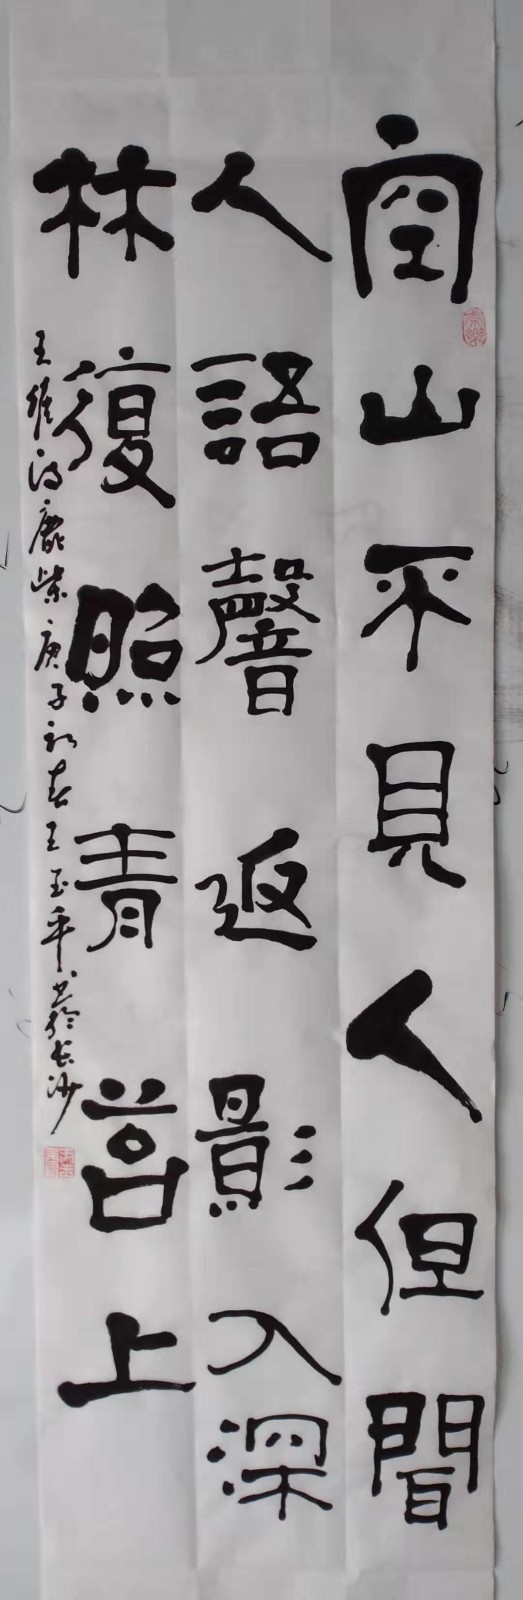 空山不見人但聞
人語聲返影入深
林復照青苔上
王維詩鹿柴庚子初春王玉平書於長沙